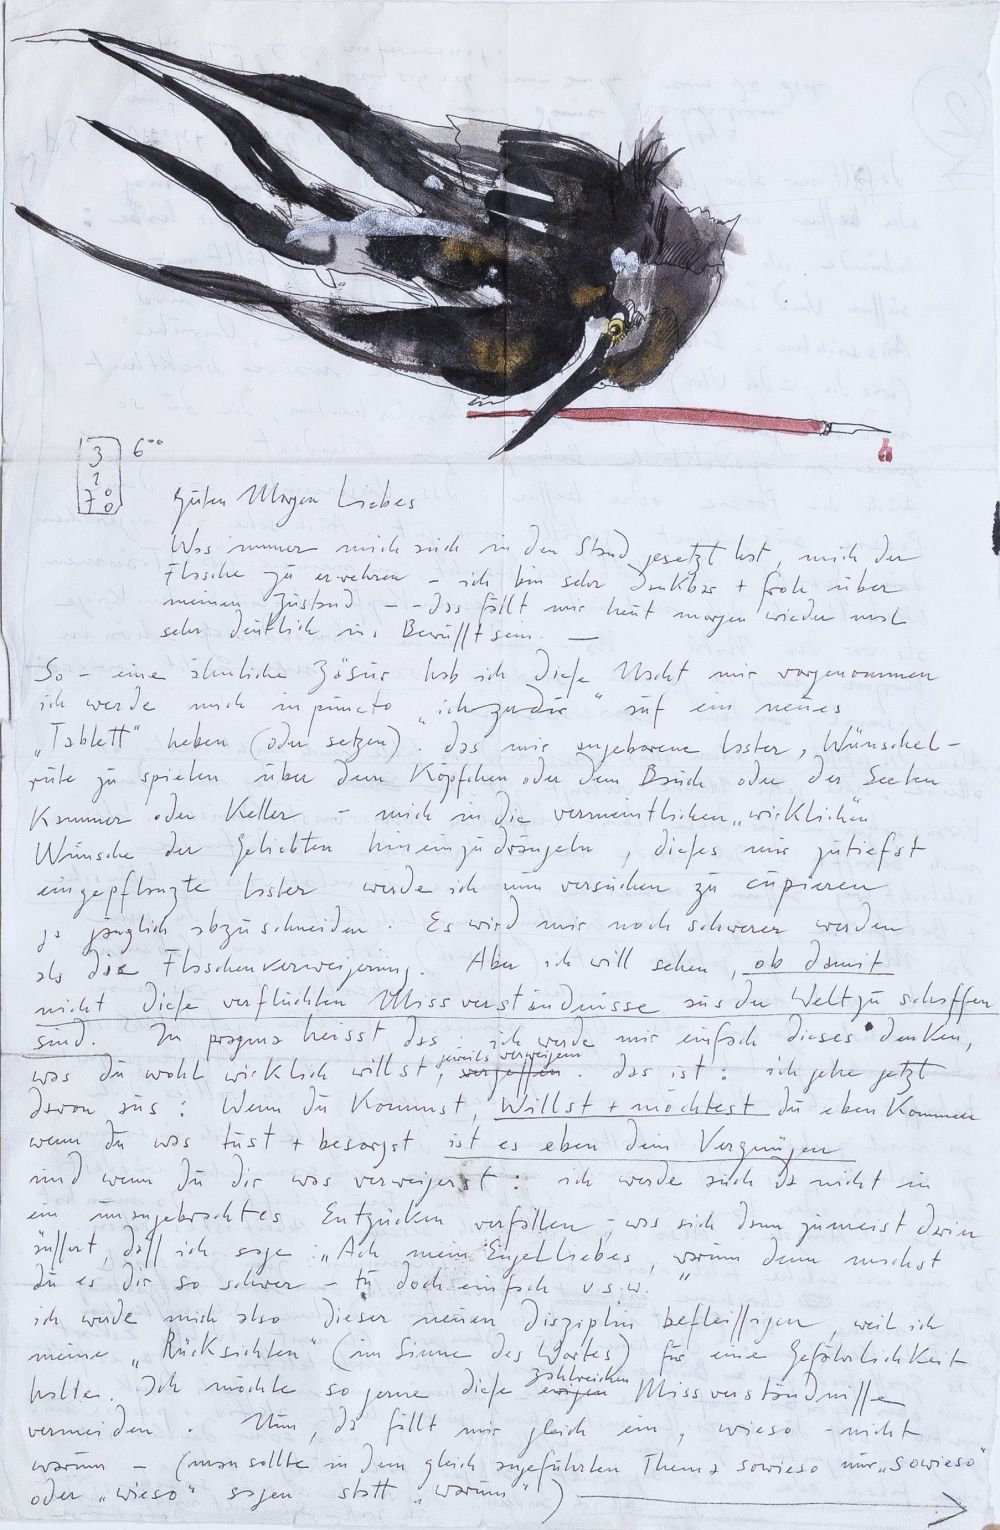 3
1
70
6°°
Guten Morgen Liebes
Was immer mich auch in den Stand gesetzt hat, mich der
Flasche zu erwehren – ich bin sehr dankbar + froh über
meinen Zustand – – das fällt mir heut morgen wieder mal
sehr deutlich ins Bewußtsein. —
So – eine ähnliche Zäsur hab ich diese Nacht mir vorgenommen
ich werde mich in puncto „ich zu dir“ auf ein neues
„Tablett“ heben (oder setzen). das mir angeborene Laster, Wünschel-
rute zu spielen über dem Köpfchen oder dem Bauch oder der Seelen
Kammer oder Keller – mich in die vermeintlichen „wirklichen“
Wünsche der Geliebten hineinzudrängeln, dieses mir zutiefst
eingepflanzte Laster werde ich nun versuchen zu cupieren
ja gänzlich abzuschneiden. Es wird mir noch schwerer werden
als die Flaschenverweigerung. Aber ich will sehen, ob damit
nicht diese verfluchten Missverständnisse aus der Welt zu schaffen
sind. In pragma heisst das: ich werde mir einfach dieses denken,
was du wohl wirklich willst, jeweils verweigern vergessen. das ist: ich gehe jetzt
davon aus: Wenn du kommst, Willst + möchtest du eben kommen
wenn du was tust + besorgst ist es eben dein Vergnügen
und wenn du dir was verweigerst: ich werde auch da nicht in
ein unangebrachtes Entzücken verfallen, was sich dann zumeist darin
äußert, daß ich sage: „Ach mein Engel Liebes, warum denn machst
du es dir so schwer – tu doch einfach u.s.w.“
ich werde mich also dieser neuen Disziplin befleißigen, weil ich
meine „Rücksichten“ (im Sinne des Wortes) für eine Gefährlichkeit
halte. Ich möchte so gerne diese zahlreichen ewigen Missverständniße
vermeiden. Nun, da fällt mir gleich ein, wieso – nicht
warum – (man sollte in dem gleich angeführten Thema sowieso nur „sowieso“
oder „wieso“ sagen statt „warum“)